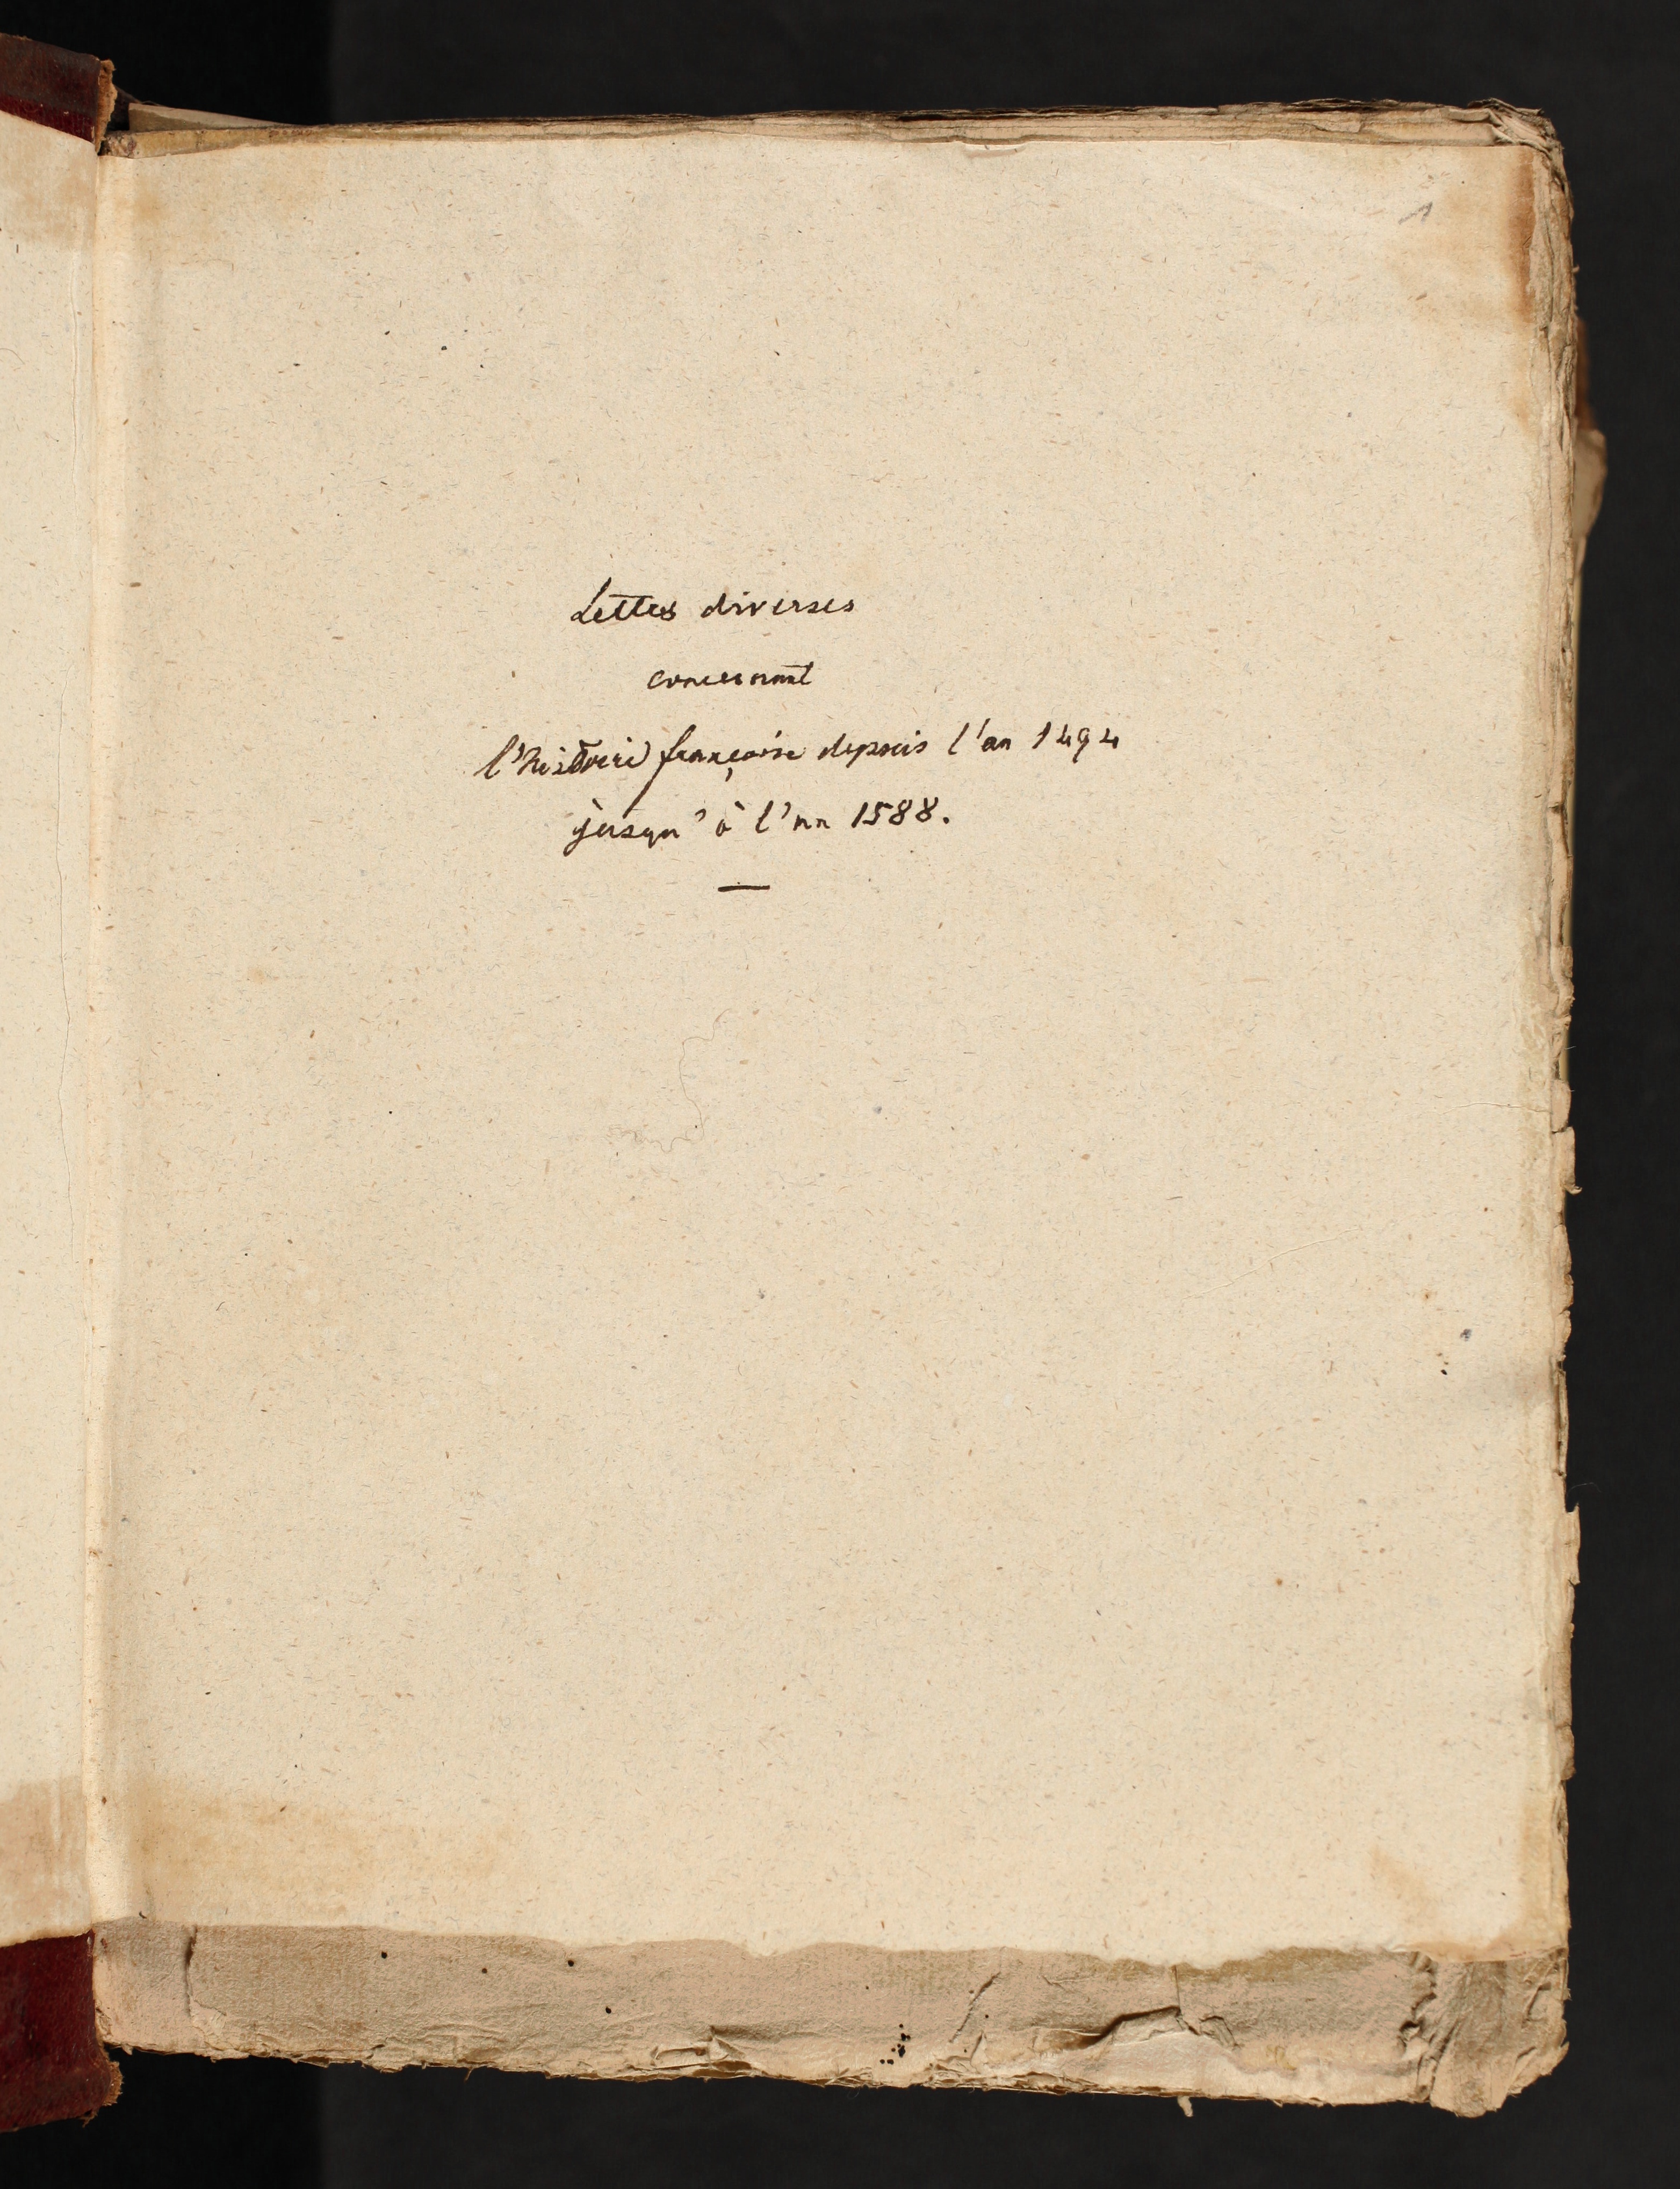 1
Lettres diverses
concernant
l'histoire françoise depuis l'an 1494
jusqu'à l'an 1588.